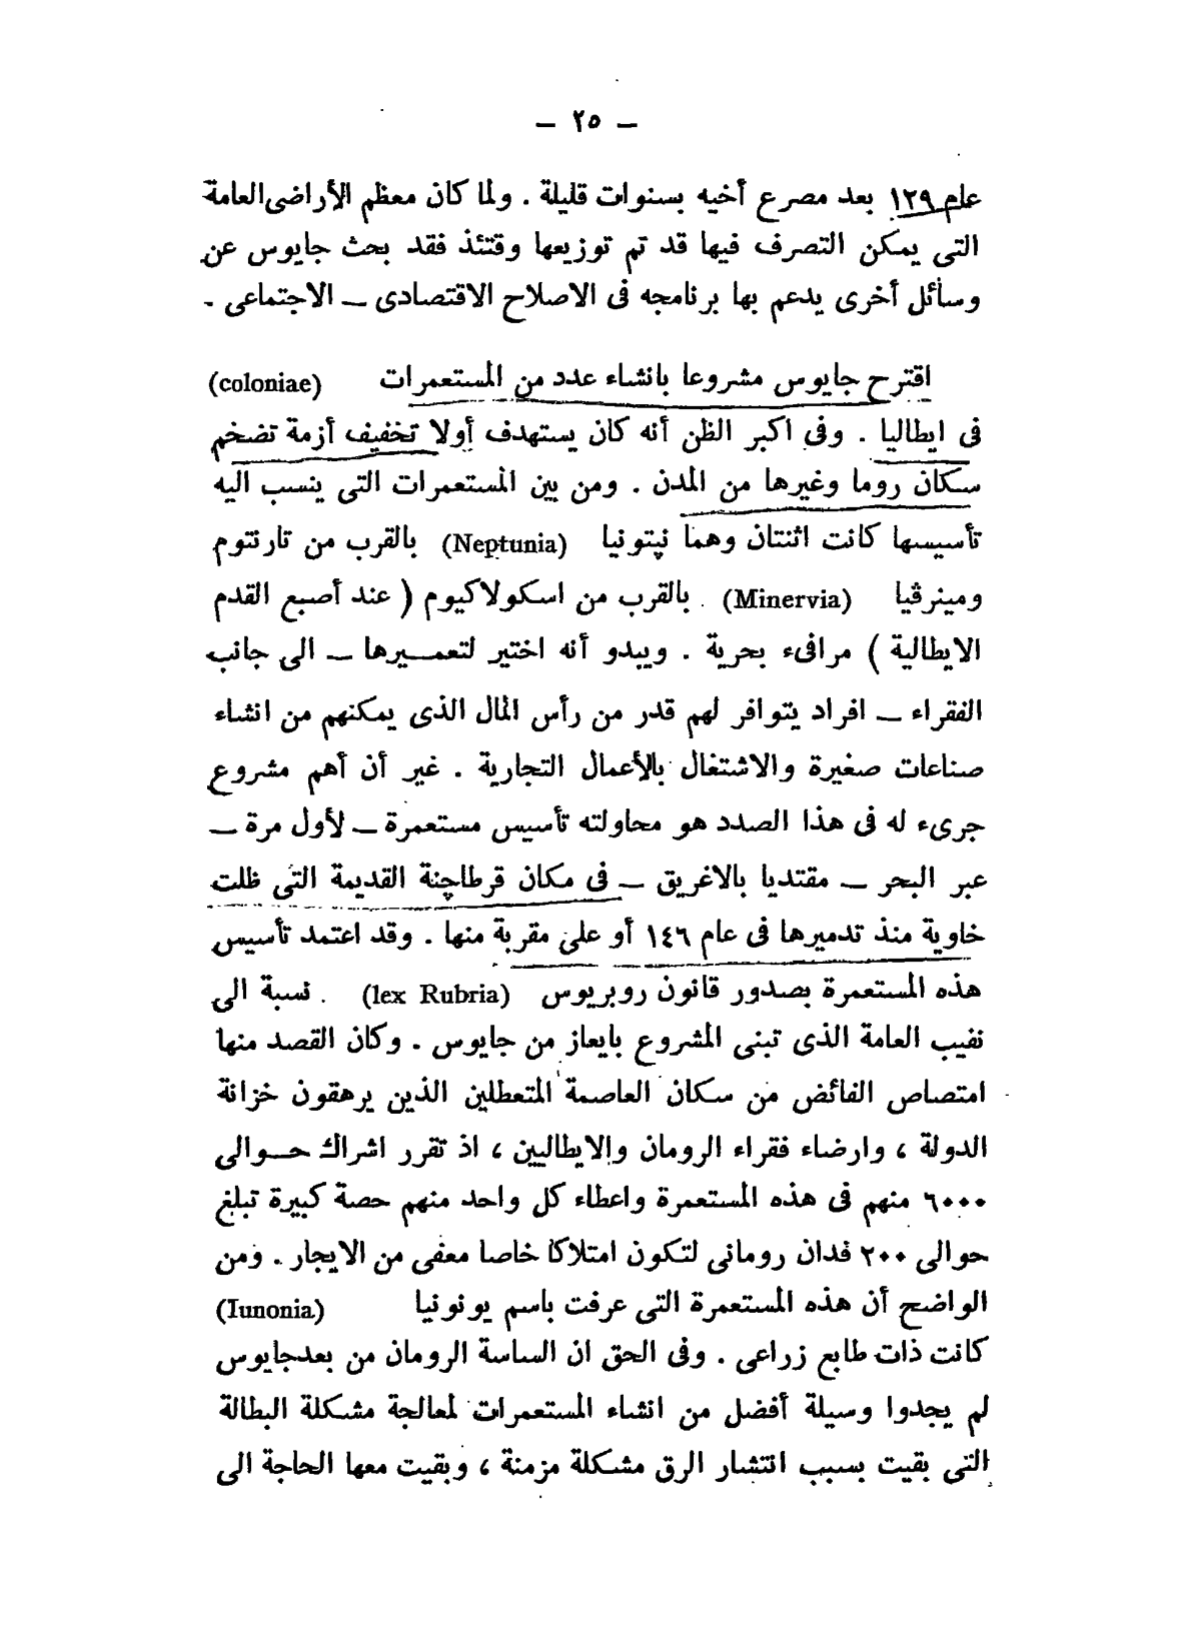 — ٢٥ —
عام ١٢٩ بعد مصرع أخيه بسنوات قليلة . ولما كان معظم الأراضى العامة
التى يمكن التصرف فيها قد تم توزيعها وقتئذ فقد بحث جايوس عن
وسائل أخرى يدعم بها برنامجه فى الاصلاح الاقتصادى — الاجتماعى .
اقترح جايوس مشروعا بانشاء عدد من المستعمرات (coloniae)
فى ايطاليا . وفى اكبر الظن أنه كان يستهدف أولا تخفيف أزمة تضخم
سكان روما وغيرها من المدن . ومن بين المستعمرات التى ينسب اليه
تأسيسها كانت اثنتان وهما نپتونيا (Neptunia) بالقرب من تارنتوم
ومينرڤيا (Minervia) بالقرب من اسكولاكيوم ( عند أصبع القدم
الايطالية ) مرافىء بحرية . ويبدو أنه اختير لتعمـــيرها — الى جانب
الفقراء — افراد يتوافر لهم قدر من رأس المال الذى يمكنهم من انشاء
صناعات صغيرة والاشتغال بالأعمال التجارية . غير أن أهم مشروع
جرىء له فى هذا الصدد هو محاولته تأسيس مستعمرة — لأول مرة —
عبر البحر — مقتديا بالاغريق — فى مكان قرطاچنة القديمة التى ظلت
خاوية منذ تدميرها فى عام ١٤٦ أو على مقربة منها . وقد اعتمد تأسيس
هذه المستعمرة بصدور قانون روبريوس (lex Rubria) . نسبة الى
نفيب العامة الذى تبنى المشروع بايعاز من جايوس . وكان القصد منها
امتصاص الفائض من سكان العاصمة المتعطلين الذين يرهقون خزانة
الدولة ، وارضاء فقراء الرومان والايطاليين ، اذ تقرر اشراك حــوالى
٦٠٠٠ منهم فى هذه المستعمرة واعطاء كل واحد منهم حصة كبيرة تبلغ
حوالى ٢٠٠ فدان رومانى لتكون امتلاكا خاصا معفى من الايجار . ومن
الواضح أن هذه المستعمرة التى عرفت باسم يونونيا (Iunonia)
كانت ذات طابع زراعى . وفى الحق ان الساسة الرومان من بعدجايوس
لم يجدوا وسيلة أفضل من انشاء المستعمرات لمعالجة مشكلة البطالة
التى بقيت بسبب انتشار الرق مشكلة مزمنة ، وبقيت معها الحاجة الى